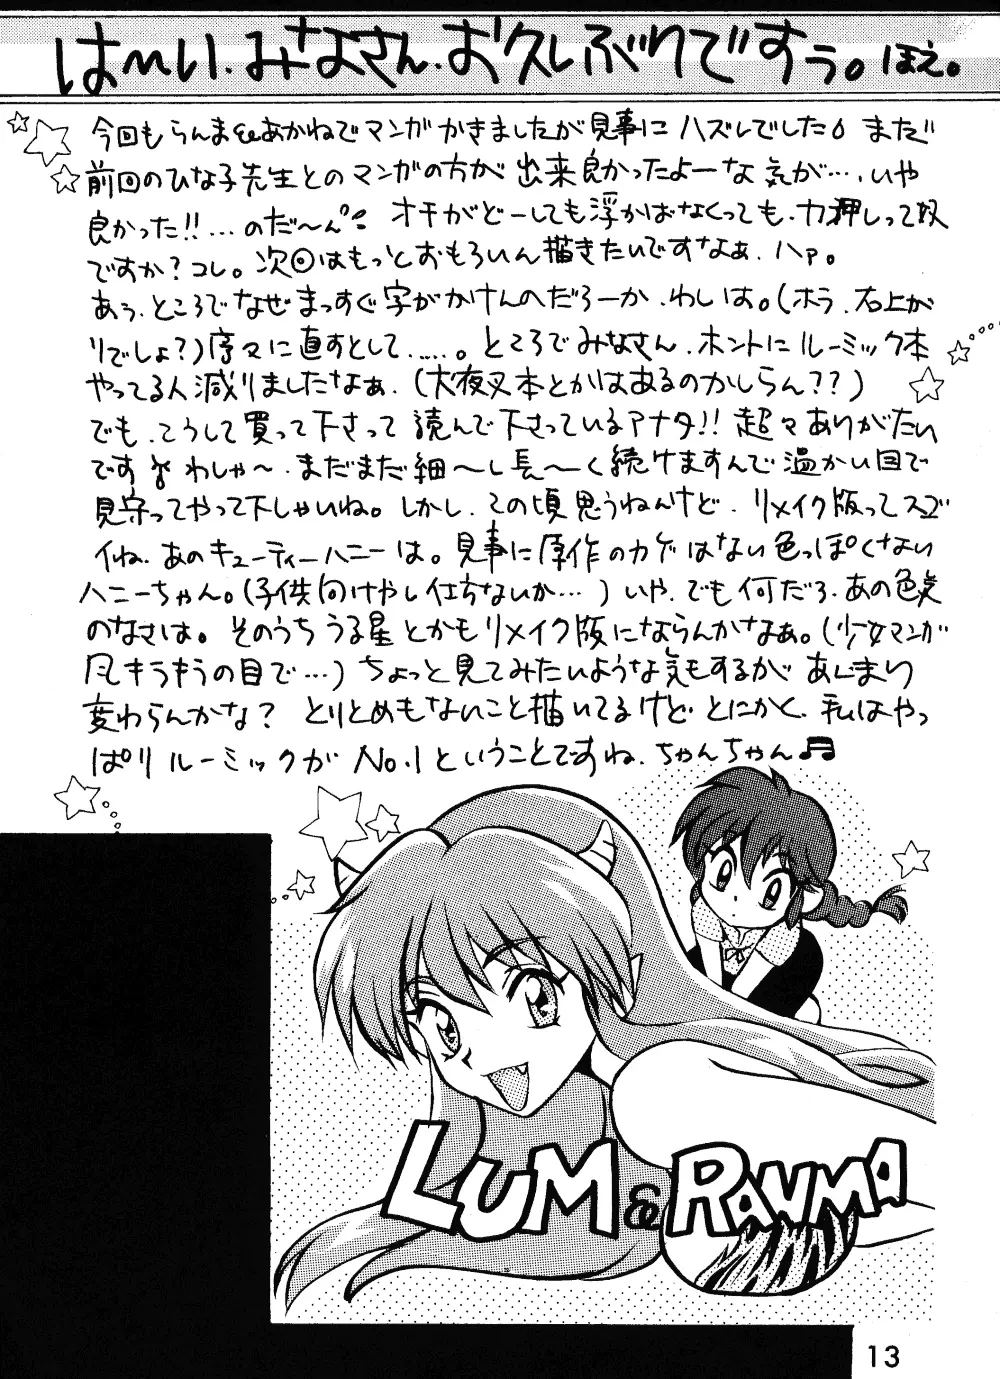 は〜い、みなさん、お久しぶりですぅ。ほえ。
今回もらんま&あかねでマンガかきましたが見事にハズレでした。まだ
前回のひな子先生とのマンガの方が出来良かったよーな気が…、いや
良かった!!…のだ〜ん。オチがどーしても浮かばなくっても、力押しって奴
ですか?コレ。次回はもっとおもろいん描きたいですなぁ、ハァ。
あぅ、ところでなぜまっすぐ字がかけんのだろーか、わしは。(ホラ、右上が
りでしょ?)序々に直すとして……。ところでみなさん、ホントにルーミック本
やってる人減りましたなぁ、(犬夜叉本とかはあるのかしらん??)
でも、こうして買って下さって読んで下さっているアナタ!!超々ありがたい
です わしゃ〜、まだまだ細〜し長〜く続けますんで温かい目で
見守ってやって下しゃいね。しかし、この頃思うねんけど、リメイク版ってスゴ
イね、あのキューティーハニーは。見事に原作のカゲはない色っぽくない
ハニーちゃん。(子供向けやし仕方ないか…)いや、でも何だろ、あの色気
のなさは。そのうちうる星とかもリメイク版にならんかなぁ。(少女マンガ
風キラキラの目で…)ちょっと見てみたいような気もするが あんまり
変わらんかな? とりとめもないこと描いてるけど とにかく、私はやっ
ぱりルーミックがNo.1ということですね、ちゃんちゃん♬
LUM & RANMA
13